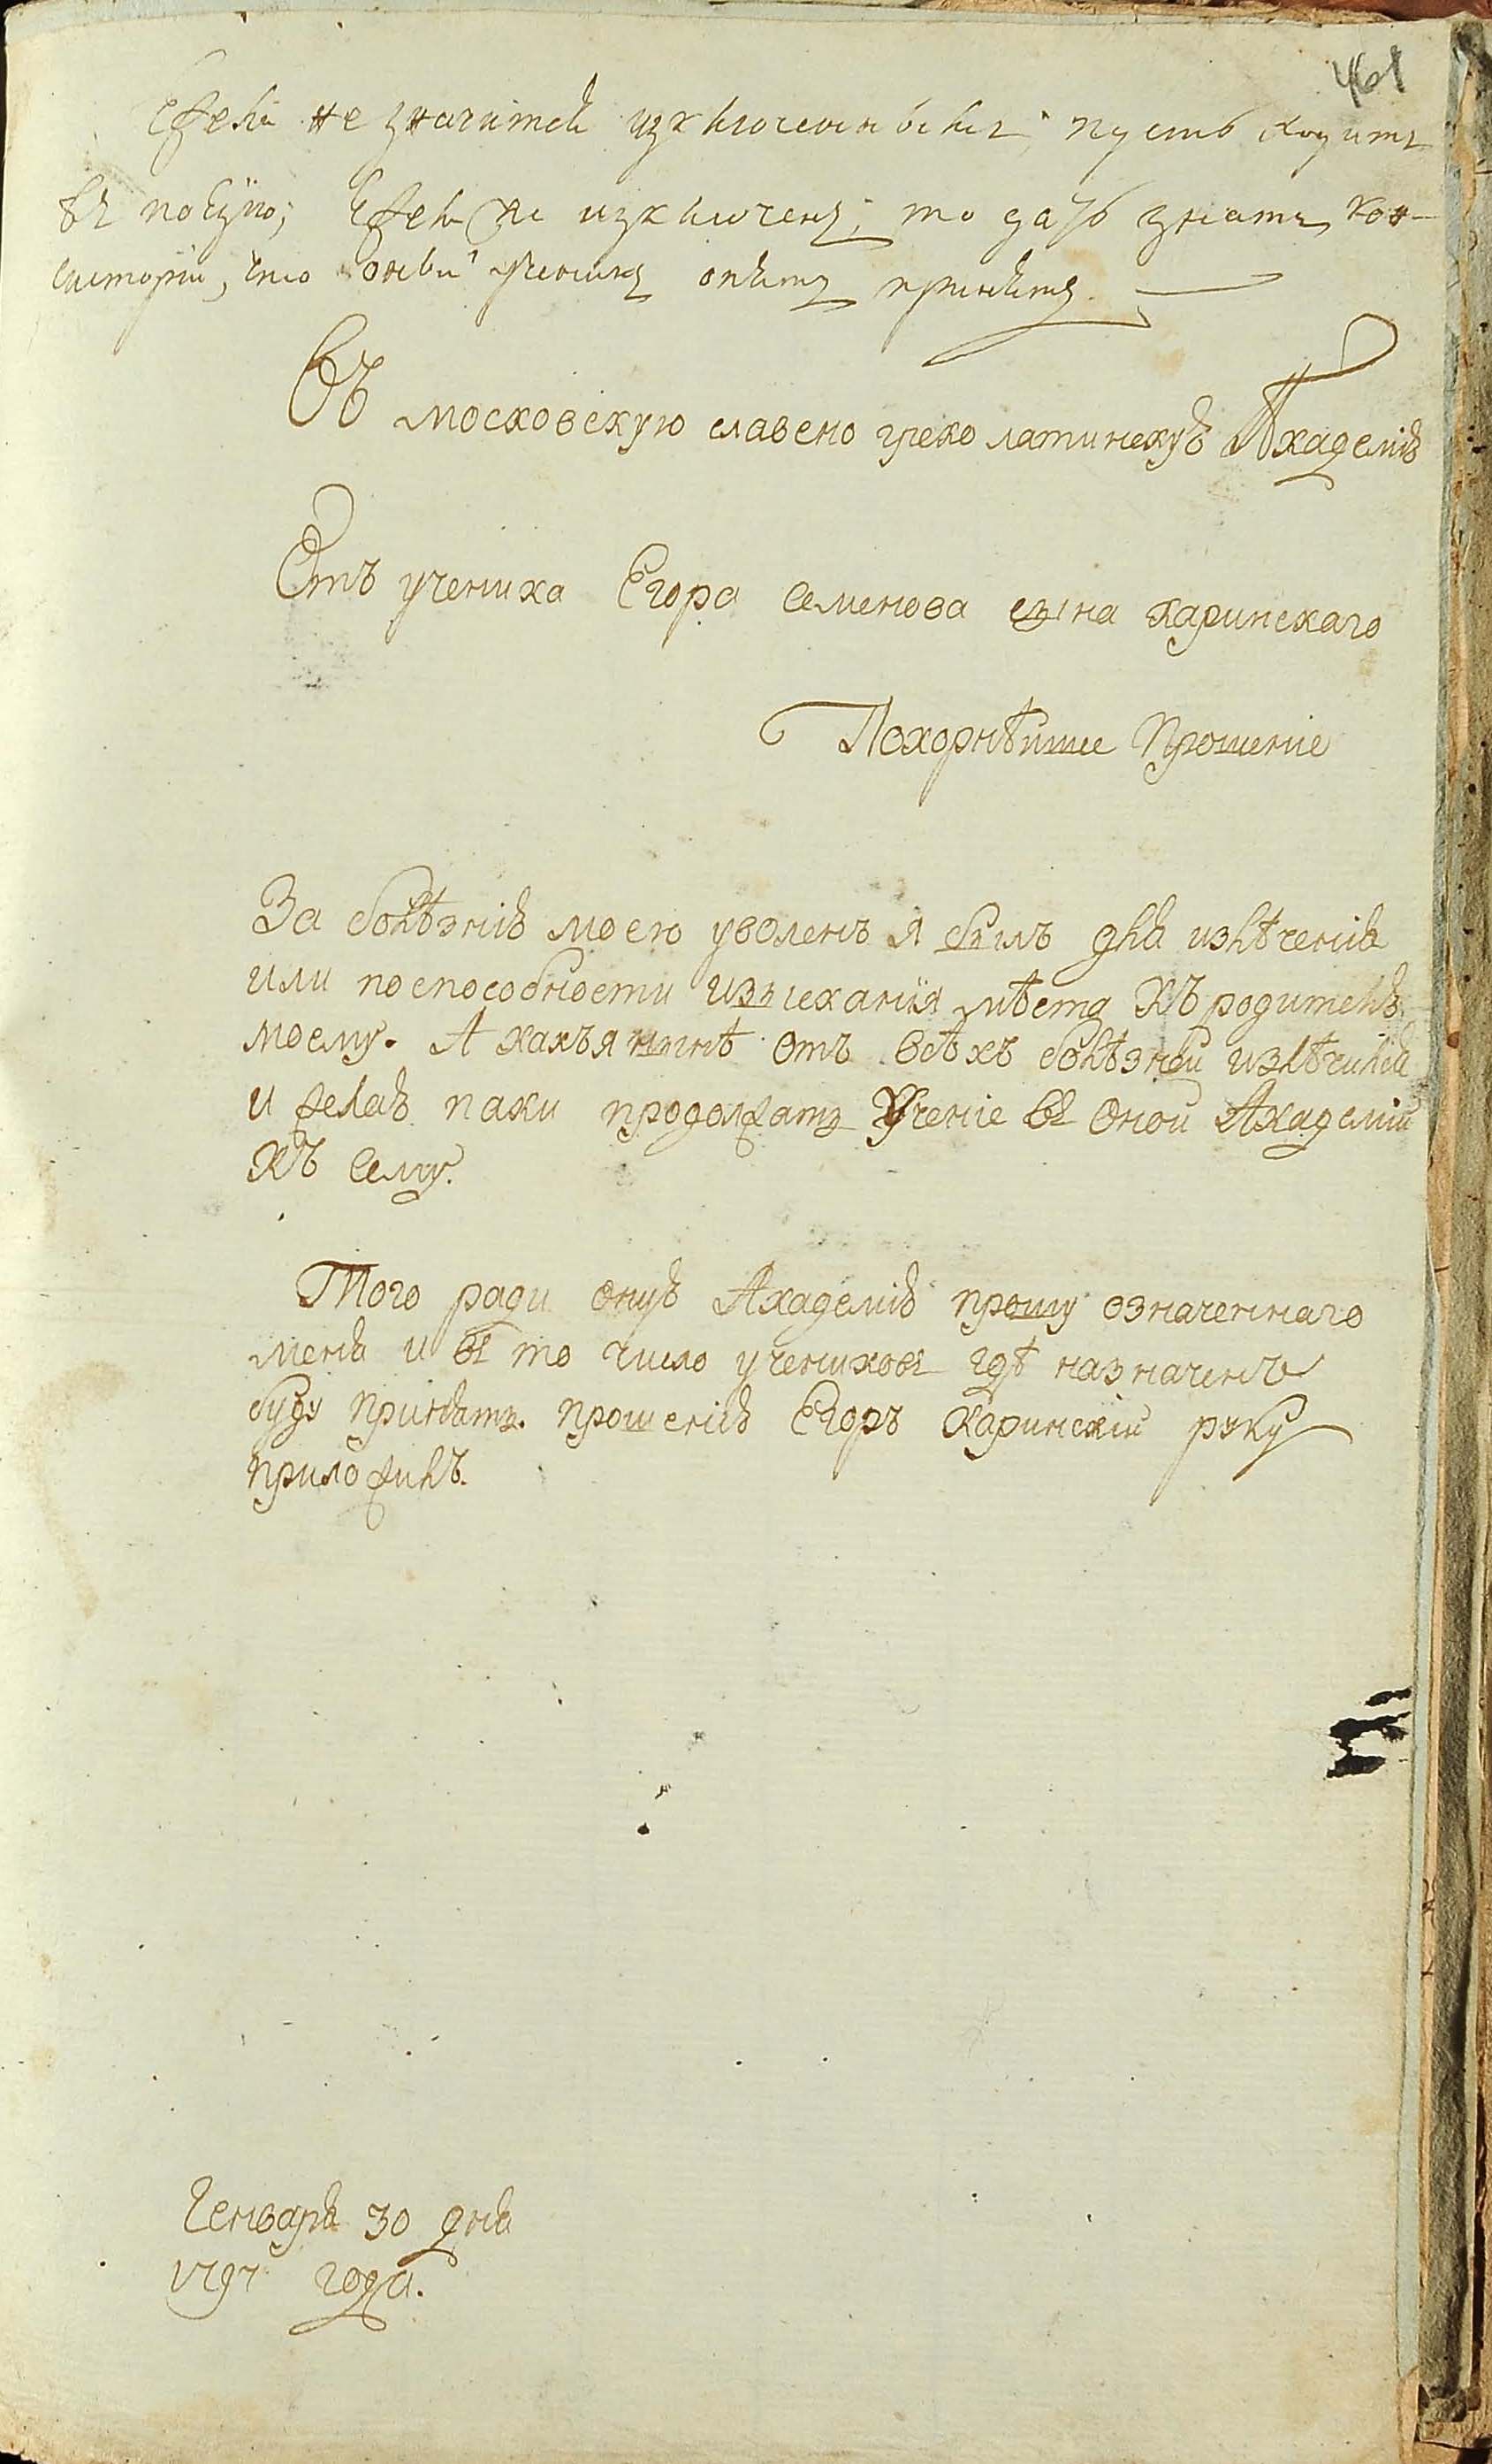 461
Ежели не значится изключеннымъ; пусть ходитъ
въ поезію; Ежели же изключенъ; то дать знать Кон-
систоріи, что оный ученикъ опять принятъ.
Въ московскую славено греко латинскую Академію
Отъ ученика Егора Семенова сына Каринскаго
Покорнѣйшее Прошеніе
За болѣзнію моею уволенъ я былъ для излѣченія
или поспособности изысканїя мѣста Къ родителю
моему. А какъ я нынѣ отъ всѣхъ болѣзней излѣчился
и желаю паки продолжать Ученіе въ Оной Академіи
Къ Сему.
Того ради оную Академію прошу означеннаго
меня и въ то число учениковъ гдѣ назначенъ
буду принять. прошенію Егоръ Каринскій руку
приложилъ.
Генваря 30 дня
1797 года.